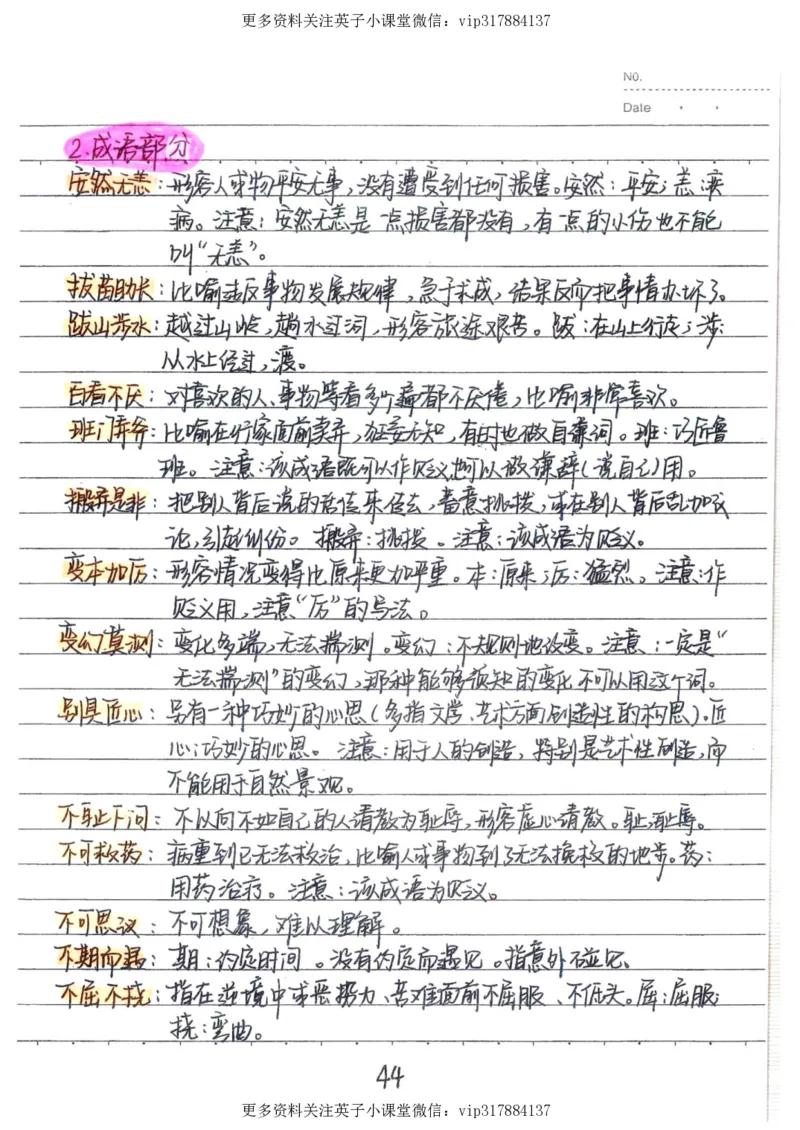 更多资料关注英子小课堂微信：vip317884137
No.
Date
2.成语部分
安然无恙：形容人或物平安无事，没有遭受到任何损害。安然：平安；恙：疾
病。注意：安然无恙是一点损害都没有，有一点的小伤也不能
叫“无恙”。
拔苗助长：比喻违反事物发展规律，急于求成，结果反而把事情办坏了。
跋山涉水：越过山岭，趟水过河，形容旅途艰苦。跋：在山上行走；涉：
从水上经过，渡。
百看不厌：对喜欢的人、事物等看多少遍都不厌倦，比喻非常喜欢。
班门弄斧：比喻在行家面前卖弄，狂妄无知，有时也做自谦词。班：巧匠鲁
班。注意：该成语既可以作贬义也可以做谦辞（说自己）用。
搬弄是非：把别人背后说的话传来传去，蓄意挑拨，或在别人背后乱加议
论，引起纠纷。搬弄：挑拨。注意：该成语为贬义。
变本加厉：形容情况变得比原来更加严重。本：原来；厉：猛烈。注意：作
贬义用，注意“厉”的写法。
变幻莫测：变化多端，无法揣测。变幻：不规则地改变。注意：一定是“
无法揣测”的变幻，那种能够预知的变化不可以用这个词。
别具匠心：另有一种巧妙的心思（多指文学、艺术方面创造性的构思）。匠
心：巧妙的心思。注意：用于人的创造，特别是艺术性创造，而
不能用于自然景观。
不耻下问：不以向不如自己的人请教为耻辱，形容虚心请教。耻：耻辱。
不可救药：病重到已无法救治，比喻人或事物到了无法挽救的地步。药：
用药治疗。注意：该成语为贬义。
不可思议：不可想象，难以理解。
不期而遇：期：约定时间。没有约定而遇见。指意外碰见。
不屈不挠：指在逆境中或恶势力、苦难面前不屈服、不低头。屈：屈服；
挠：弯曲。
44
更多资料关注英子小课堂微信：vip317884137